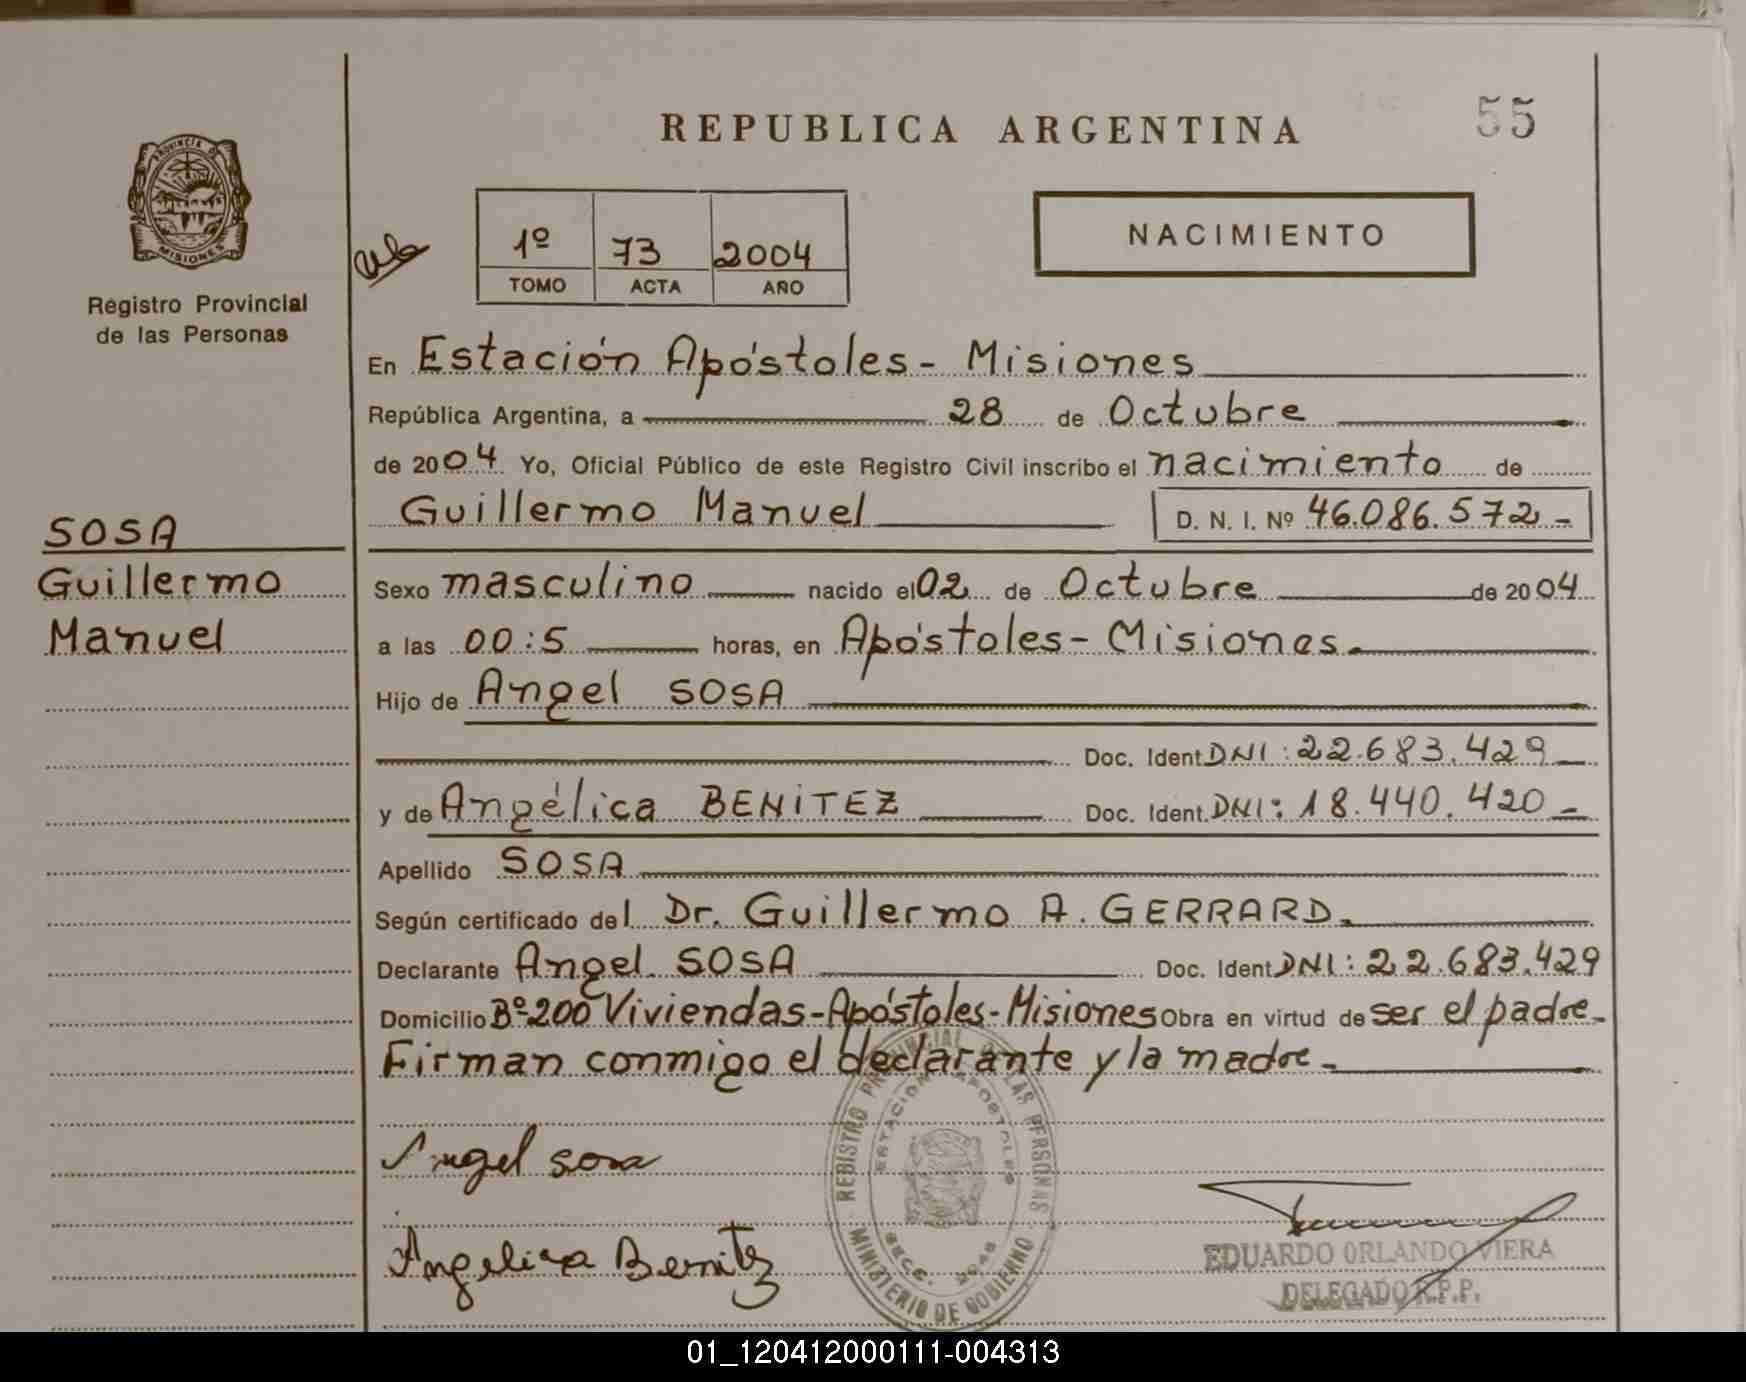 REPUBLICA ARGENTINA
55
PROVINCIA DE
MISIONES
Registro Provincial
de las Personas
1º 73 2004
TOMO ACTA AÑO
NACIMIENTO
En Estación Apóstoles - Misiones
República Argentina, a 28 de Octubre
de 2004 Yo, Oficial Público de este Registro Civil inscribo el nacimiento de
Guillermo Manuel D. N. I. Nº 46.086.572-
SOSA
Guillermo
Manuel
Sexo masculino nacido el 02 de Octubre de 2004
a las 00:5 horas, en Apóstoles - Misiones.
Hijo de Angel SOSA
Doc. Ident. DNI: 22.683.429
y de Angélica BENITEZ Doc. Ident. DNI: 18.440.420-
Apellido SOSA
Según certificado del Dr. Guillermo A. GERRARD.
Declarante Angel SOSA Doc. Ident DNI: 22.683.429
Domicilio Bº 200 Viviendas - Apóstoles - Misiones Obra en virtud de ser el padre.
Firman conmigo el declarante y la madre.
Angel sosa
Angelica Benitez
REGISTRO PROVINCIAL DE LAS PERSONAS
ESTACION APOSTOLES
SECC.
MINISTERIO DE GOBIERNO
EDUARDO ORLANDO VIERA
DELEGADO R.P.P.
01_120412000111-004313